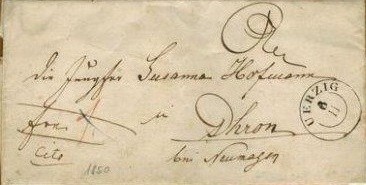 An
die Jungfer Susanna Hofmann
in
Dhron
bei Neumagen
frei
Cito
1850
UERZIG
8
11